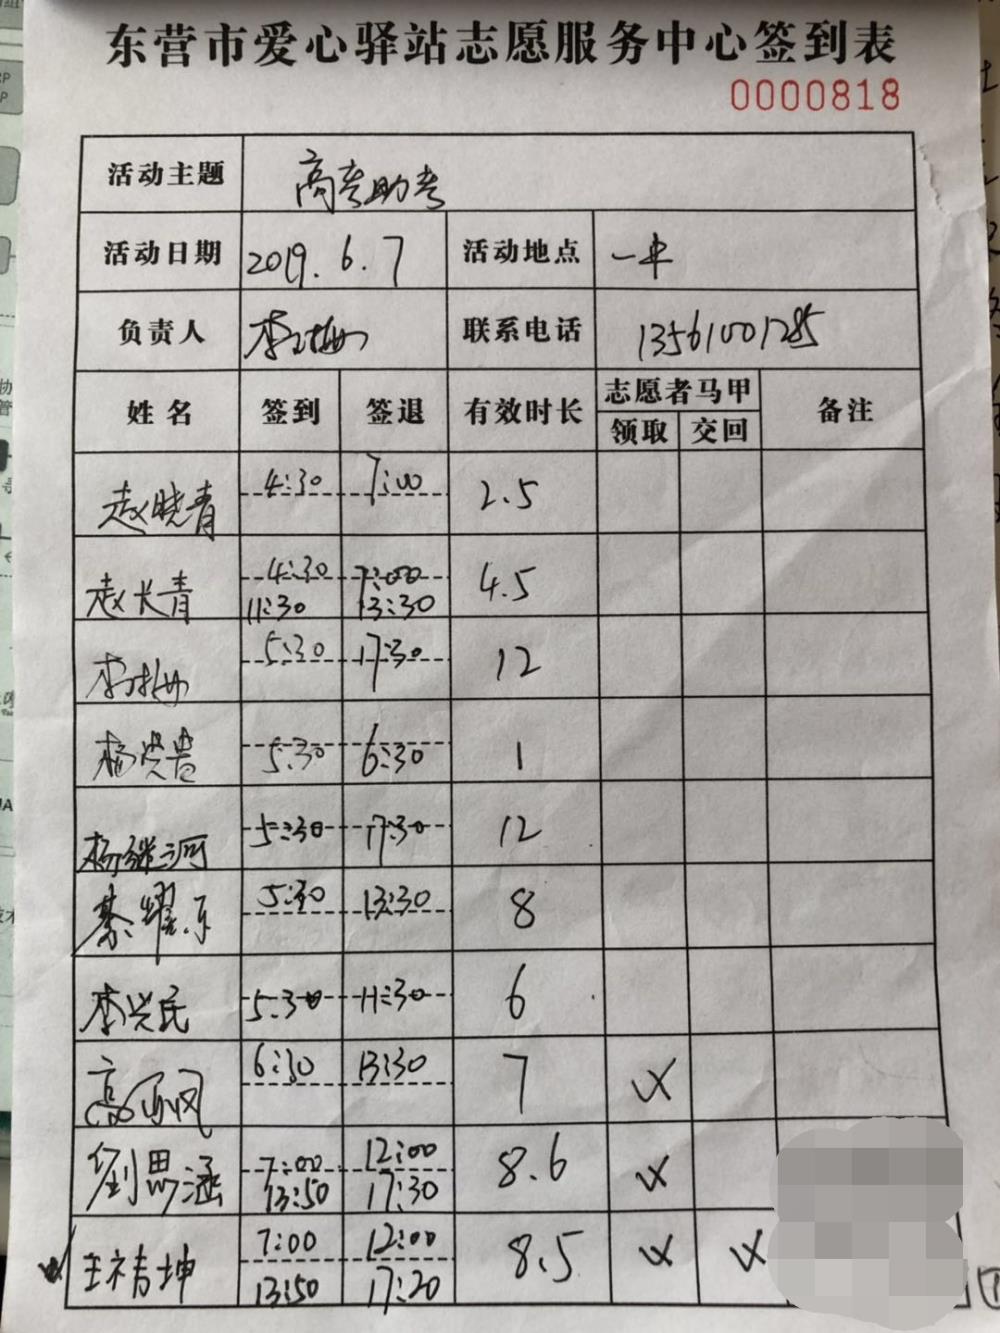 东营市爱心驿站志愿服务中心签到表
0000818
活动主题 高考助考
活动日期 2019.6.7 活动地点 一中
负责人 李梅 联系电话 13561001285
姓名 签到 签退 有效时长 志愿者马甲 备注
领取 交回
赵晓青 4:30 7:00 2.5
赵长青 4:30 7:00 4.5
11:30 13:30
李梅 5:30 17:30 12
杨学贵 5:30 6:30 1
杨继河 5:30 17:30 12
綦耀东 5:30 13:30 8
李兴民 5:30 11:30 6
高丽凤 6:30 13:30 7
刘思涵 7:00 12:00 8.6
13:50 17:30
王禧坤 7:00 12:00 8.5
13:50 17:20